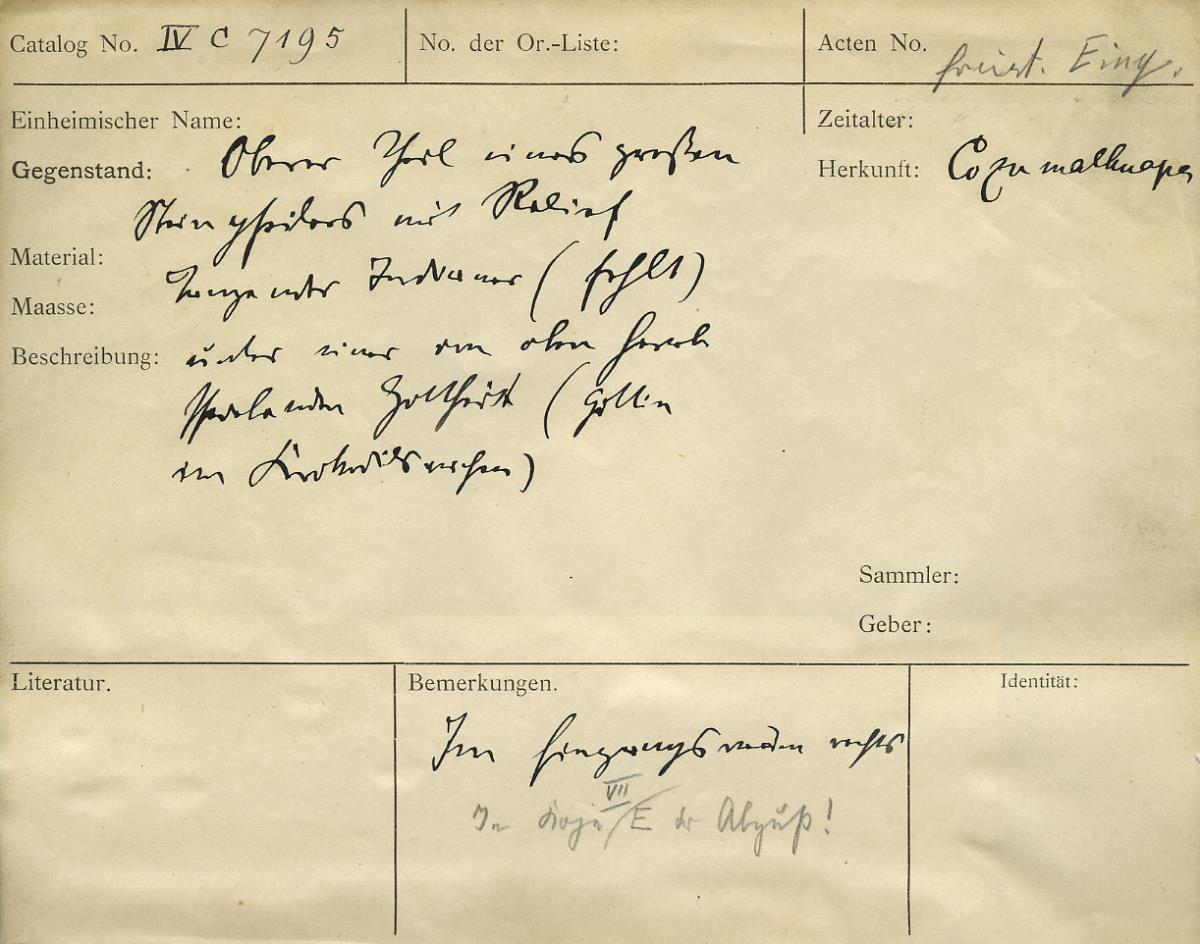 Catalog No. IV C 7195
No. der Or.-Liste:
Acten No.
Eing.
Einheimischer Name:
Zeitalter:
Gegenstand: Oberer Theil eines großen
Herkunft: Cozumalhuapa
Steinpfeilers mit Relief
Material:
Tanzender Indianer (fehlt)
Maasse:
Beschreibung: unter einer von oben herab
Gottheit (Göttin
im Krokodilsrachen)
Sammler:
Geber:
Literatur.
Bemerkungen.
Identität:
Im rechts
VII
In Koje / E der Abguß!